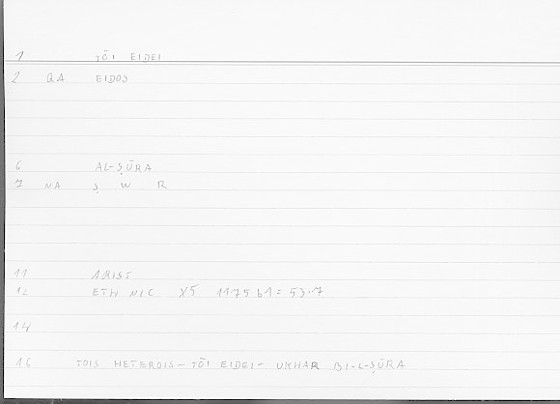 1 TŌI EIDEI
2 QA EIDOS
6 AL-ṢŪRA
7 NA Ṣ W R
11 ARIST
12 ETH NIC 1175 b1 = 53·7
14
16 TOIS HETEROIS - TŌI EIDEI - UKHAR BI-L-ṢŪRA